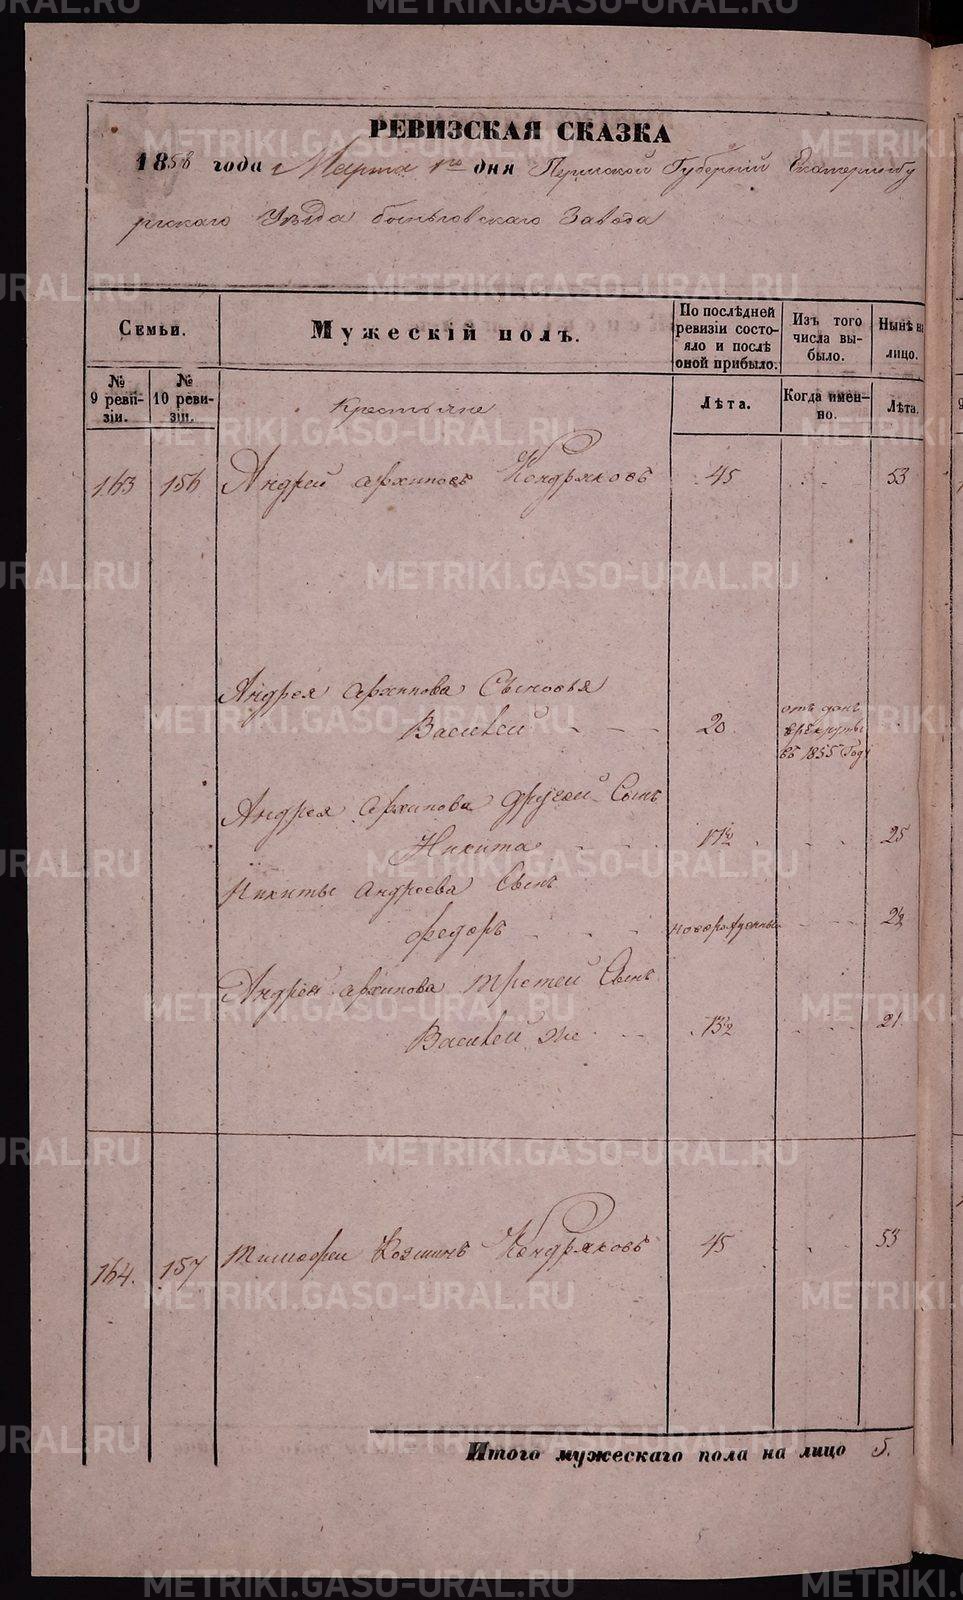 РЕВИЗСКАЯ СКАЗКА
1858 года Марта 1го дня Пермской Губерніи Екатеринбу
ргскаго Уѣзда Завода
Семьи.
Мужескій полъ.
По послѣдней ревизіи состояло и послѣ оной прибыло.
Изъ того числа выбыло.
Нынѣ на лицо.
№ 9 ревизіи.
№ 10 ревизіи.
Лѣта.
Когда именно.
Лѣта.
Крестьяне
163 156 Андрей Архиповъ Кондряковъ 45 53
Андрея Архипова Сыновья
Василей 20 отъ данъ въ рекруты въ 1855 Году
Андрея Архипова другой Сынъ
Никита 17 25
Никиты Андреева Сынъ
Федоръ новорожденный
Андрея Архипова третей Сынъ
Василей же 13 21
164. 157 Тимофей Козминъ Кондряковъ 45 53
Итого мужескаго пола на лицо 5.
METRIKI.GASO-URAL.RU